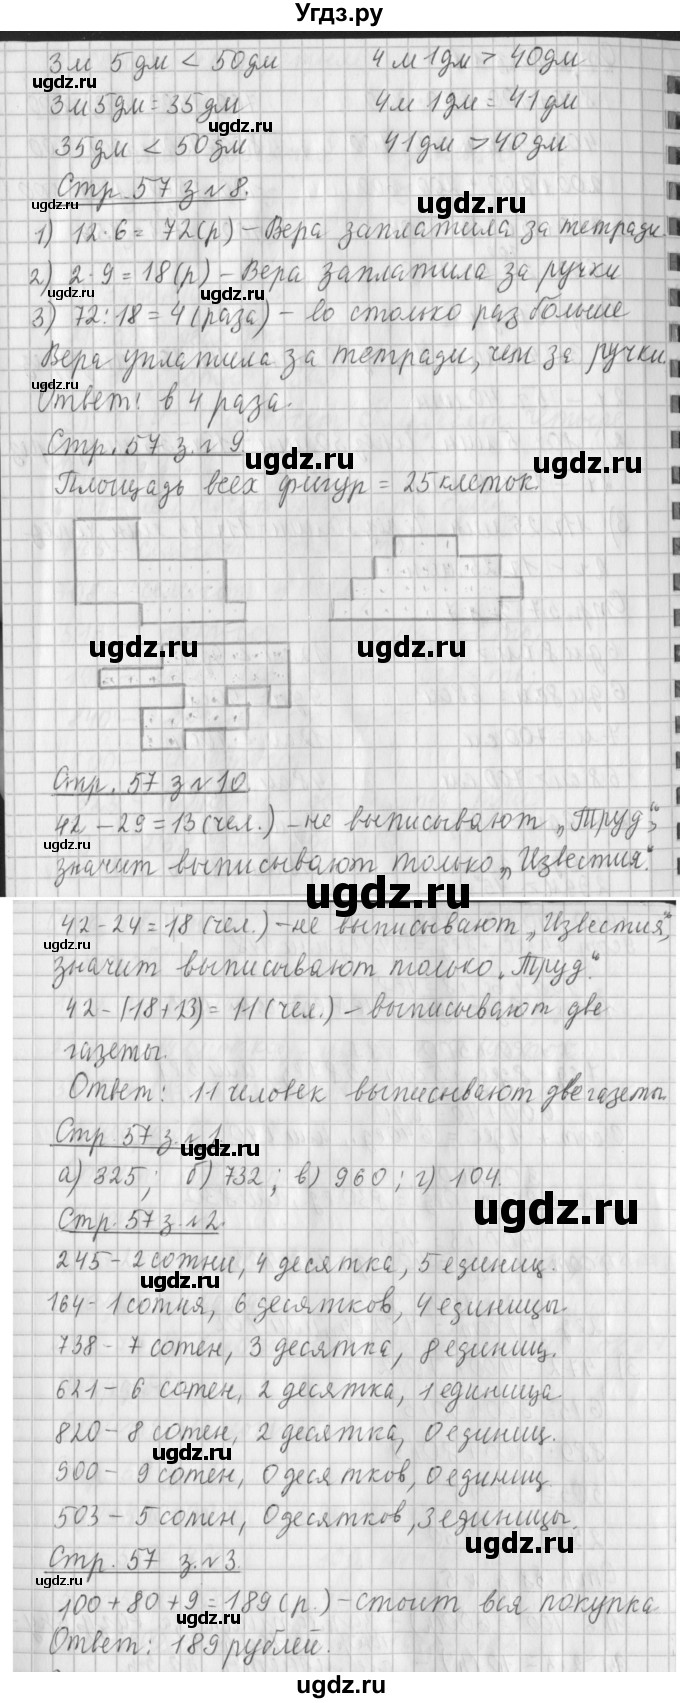 Угдз.ру
3м 5дм < 50дм 4м 1дм > 40дм
ugdz.ru
3м5дм = 35дм 4м 1дм = 41дм
ugdz.ru
35дм < 50дм 41дм > 40дм
Стр. 57 з №8.
ugdz.ru ugdz.ru
1) 12·6 = 72(р) – Вера заплатила за тетради.
2) 2·9 = 18(р) – Вера заплатила за ручки
ugdz.ru ugdz.ru
3) 72:18 = 4(раза) – во столько раз больше
Вера уплатила за тетради, чем за ручки.
ugdz.ru
Ответ: в 4 раза.
Стр. 57 з. №9.
ugdz.ru ugdz.ru
Площадь всех фигур = 25 клеток.
ugdz.ru ugdz.ru
Стр. 57 з №10.
42 – 29 = 13(чел.) – не выписывают „Труд“,
значит выписывают только „Известия“.
ugdz.ru
42 - 24 = 18(чел.) – не выписывают „Известия“,
ugdz.ru
значит выписывают только „Труд“.
42 – (18+13) = 11(чел.) – выписывают две
газеты.
Ответ: 11 человек выписывают две газеты.
Стр 57 з. №1
ugdz.ru
а) 325; б) 732; в) 960; г) 104.
ugdz.ru
Стр. 57 з. №2.
245 – 2 сотни, 4 десятка, 5 единиц.
ugdz.ru
164 – 1 сотня, 6 десятков, 4 единицы.
738 – 7 сотен, 3 десятка, 8 единиц.
621 – 6 сотен, 2 десятка, 1 единица
820 – 8 сотен, 2 десятка, 0 единиц.
ugdz.ru
900 – 9 сотен, 0 десятков, 0 единиц
503 – 5 сотен, 0 десятков, 3 единицы.
ugdz.ru
Стр. 57 з. №3.
ugdz.ru
100 + 80 + 9 = 189(р.) – стоит вся покупка
ugdz.ru
Ответ: 189 рублей.
ugdz.ru